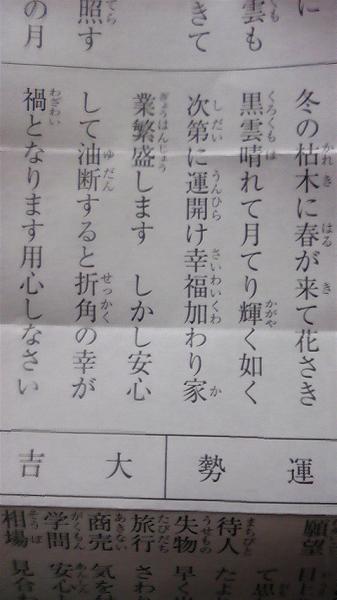 に
雲も
きて
照す
の月
冬の枯木に春が来て花さき
黒雲晴れて月てり輝く如く
次第に運開け幸福加わり家
業繁盛します　しかし安心
して油断すると折角の幸が
禍となります用心しなさい
運勢
大吉
願望
待人 たよ
失物 早く
旅行 さわ
商売 気を
学問 安心
相場 見合